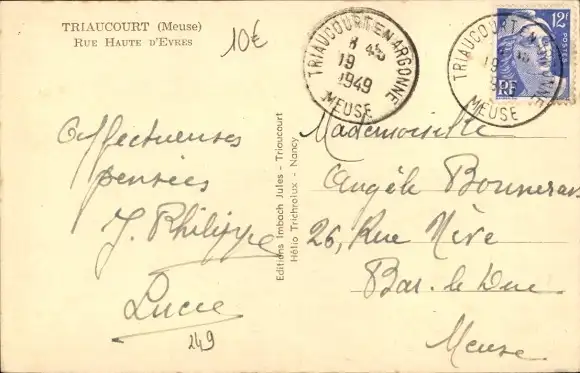 TRIAUCOURT (Meuse)
RUE HAUTE D'EVRES
10€
TRIAUCOURT EN ARGONNE
8 45
19
1949
MEUSE
12F
POSTES
RF
TRIAUCOURT EN
19
MEUSE
Affectueuses
pensées
J. Philippe
Lucie
249
Editions Imbach Jules - Triaucourt
Hélio Trichrolux - Nancy
Mademoiselle
Angèle
26, Rue Nève
Bar. le Duc
Meuse